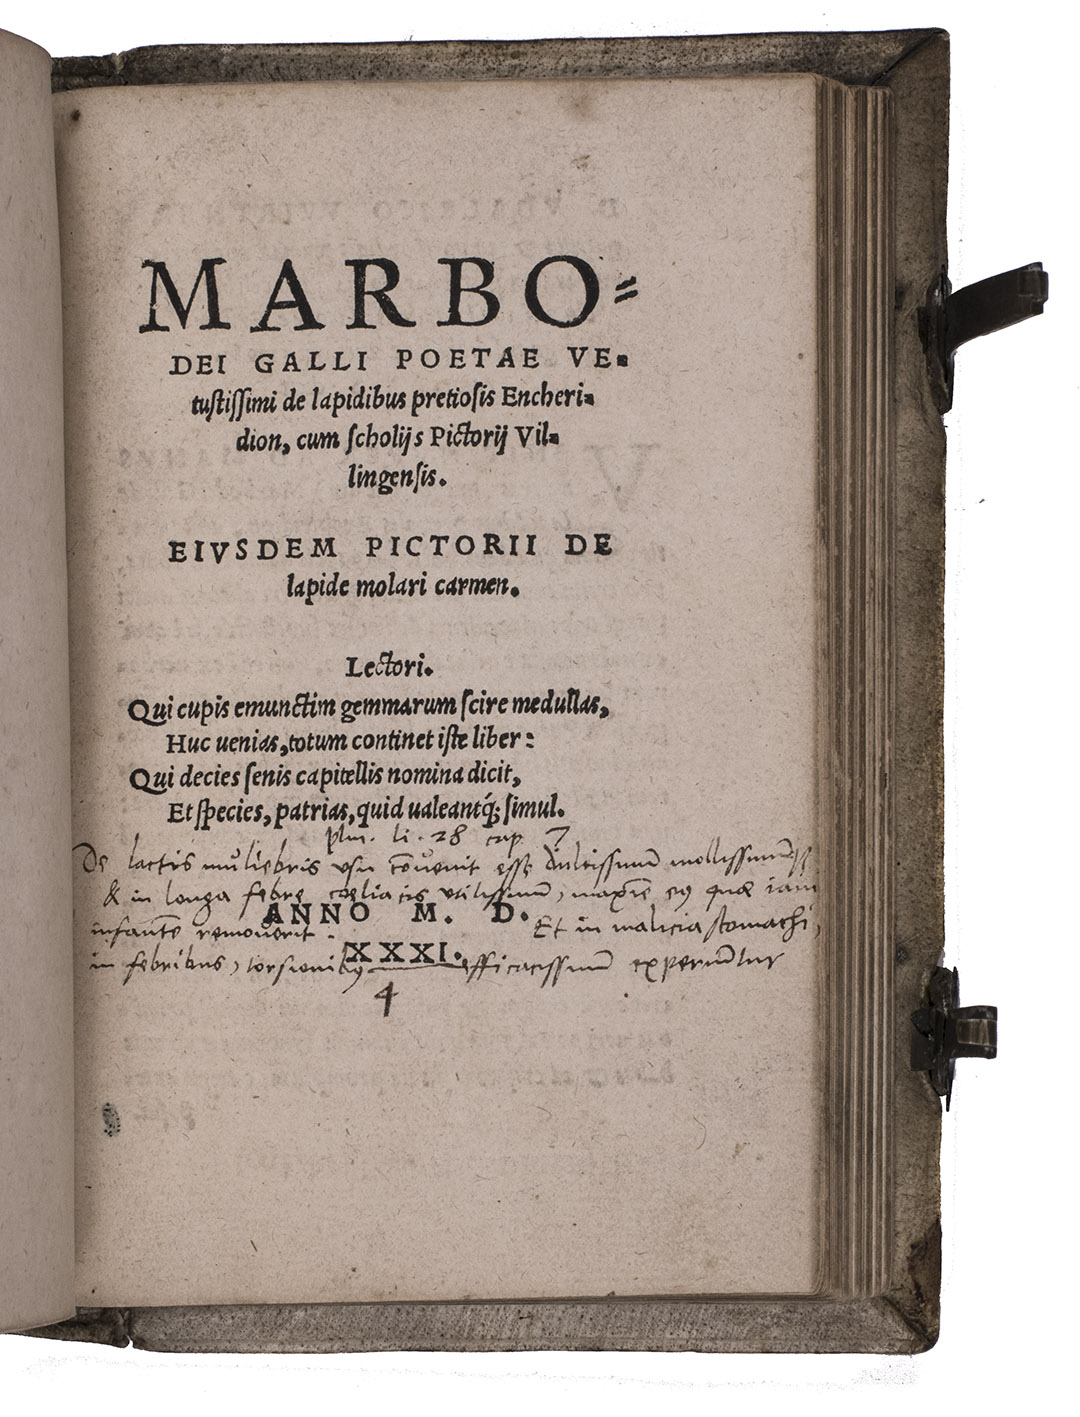 MARBO-
DEI GALLI POETAE VE-
tustissimi de lapidibus pretiosis Encheri-
dion, cum scholijs Pictorij Vil-
lingensis.
EIVSDEM PICTORII DE
lapide molari carmen.
Lectori.
Qui cupis emunctim gemmarum scire medullas,
Huc uenias, totum continet iste liber:
Qui decies senis capitellis nomina dicit,
Et species, patrias, quid ualeantq́; simul.
plin. li. 28 cap 7
De lactis muliebris usu cōuenit esse dulcissimū mollissimūq
& in longa febre cœliacis utilissimū, maxīe eiꝰ quæ iam
ANNO M. D.
infantē remouerit. Et in malicia stomachi,
XXXI.
in febribus, torsionibus efficacissimū experiūtur
4